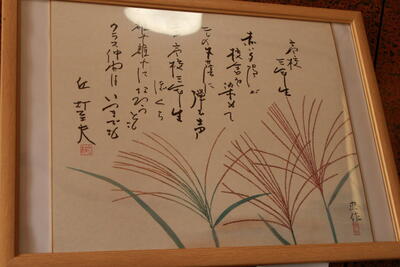 高校三年生
赤い夕陽が
校舎を染めて
ニレの木蔭に弾む声
高校三年生
ぼくら
離れ離れになろうとも
クラス仲間はいつまでも
丘灯至夫